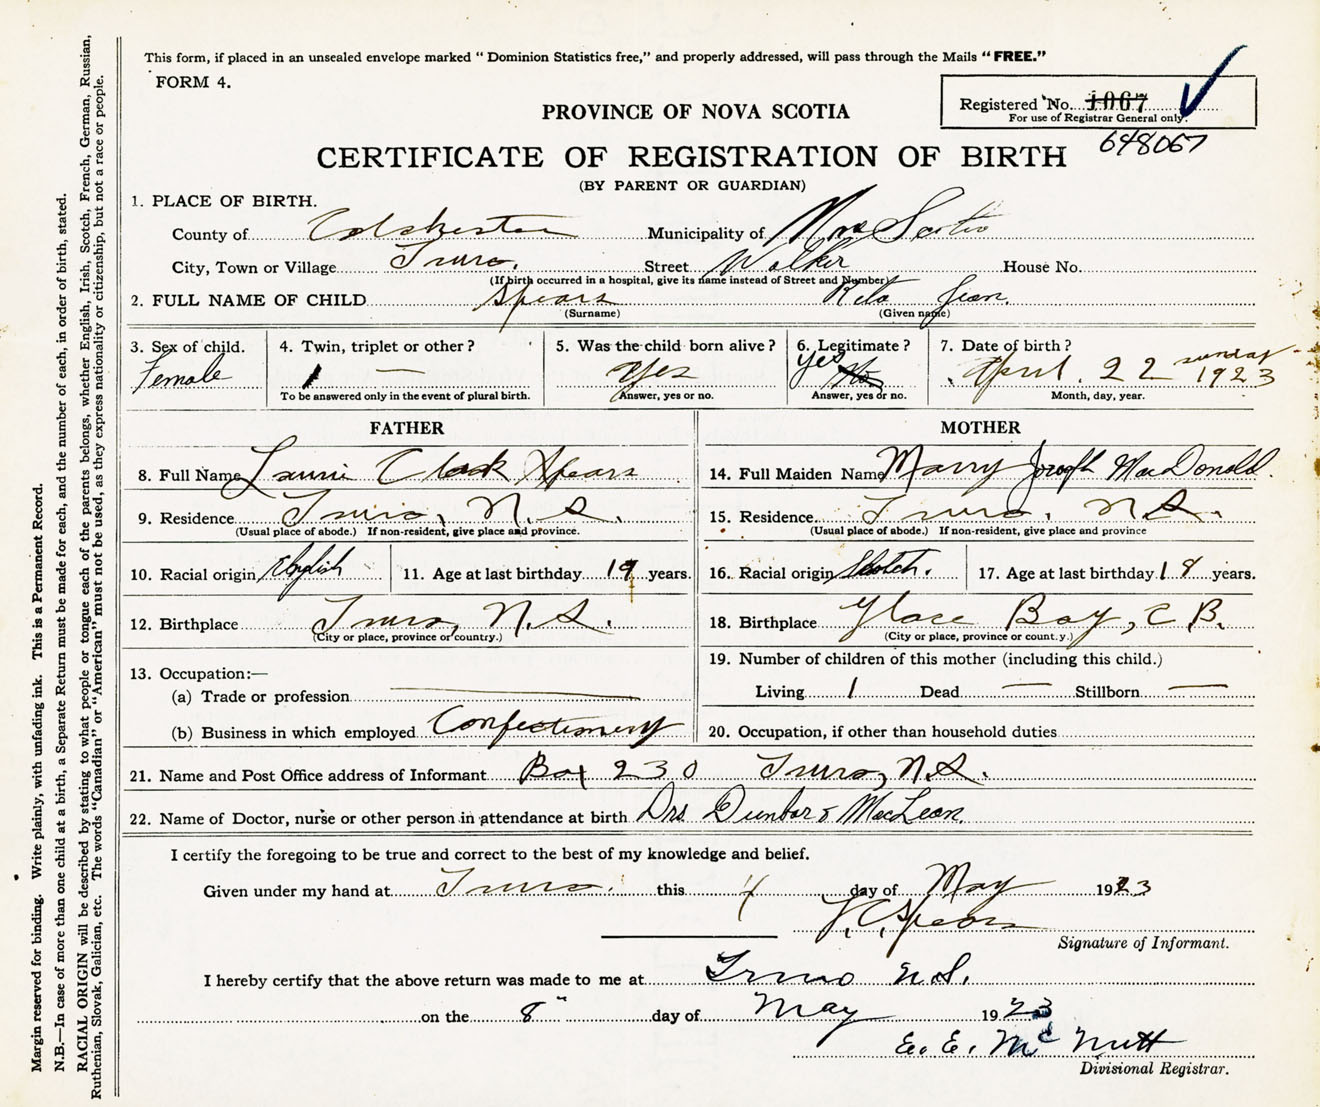 This form, if placed in an unsealed envelope marked “ Dominion Statistics free,” and properly addressed, will pass through the Mails “ FREE.”
FORM 4.
Registered No. 1067
For use of Registrar General only.
648067
PROVINCE OF NOVA SCOTIA
CERTIFICATE OF REGISTRATION OF BIRTH
(BY PARENT OR GUARDIAN)
1. PLACE OF BIRTH.
County of Colchester Municipality of Nova Scotia
City, Town or Village Truro. Street Walker House No.
(If birth occurred in a hospital, give its name instead of Street and Number)
2. FULL NAME OF CHILD Spears Rita Jean.
(Surname) (Given name)
3. Sex of child. 4. Twin, triplet or other ? 5. Was the child born alive ? 6. Legitimate ? 7. Date of birth ?
Female 1 — Yes Yes No April. 22 sunday 1923
To be answered only in the event of plural birth. Answer, yes or no. Answer, yes or no. Month, day, year.
FATHER MOTHER
8. Full Name Laurie Clark Spears 14. Full Maiden Name Marry Joseph MacDonald.
9. Residence Truro, N.S. 15. Residence Truro, N.S.
(Usual place of abode.) If non-resident, give place and province. (Usual place of abode.) If non-resident, give place and province
10. Racial origin English 11. Age at last birthday 19 years. 16. Racial origin Scotch. 17. Age at last birthday 18 years.
12. Birthplace Truro, N.S. 18. Birthplace Glace Bay, C B.
(City or place, province or country.) (City or place, province or count.y.)
13. Occupation:— 19. Number of children of this mother (including this child.)
(a) Trade or profession — Living 1 Dead — Stillborn —
(b) Business in which employed Confectionery 20. Occupation, if other than household duties
21. Name and Post Office address of Informant Box 230 Truro, N.S.
22. Name of Doctor, nurse or other person in attendance at birth Drs Dunbar & MacLean.
I certify the foregoing to be true and correct to the best of my knowledge and belief.
Given under my hand at Truro. this 4 day of May 1923
L.C. Spears
Signature of Informant.
I hereby certify that the above return was made to me at Truro N.S.
on the 8" day of May 1923
E. E. McNutt
Divisional Registrar.
Margin reserved for binding. Write plainly, with unfading ink. This is a Permanent Record.
N.B.—In case of more than one child at a birth, a Separate Return must be made for each, and the number of each, in order of birth, stated.
RACIAL ORIGIN will be described by stating to what people or tongue each of the parents belongs, whether English, Irish, Scotch, French, German, Russian,
Ruthenian, Slovak, Galician, etc. The words “Canadian” or “American” must not be used, as they express nationality or citizenship, but not a race or people.